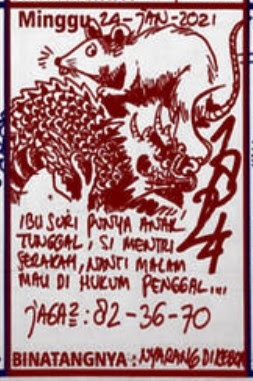 Minggu 24-JAN-2021
IBU SURI PUNYA ANAK
TUNGGAL, SI MENTRI
SERAKAH, NANTI MALAM
MAU DI HUKUM PENGGAL...
JAGA2 : 82-36-70
BINATANGNYA : NYARANG DIKEBON